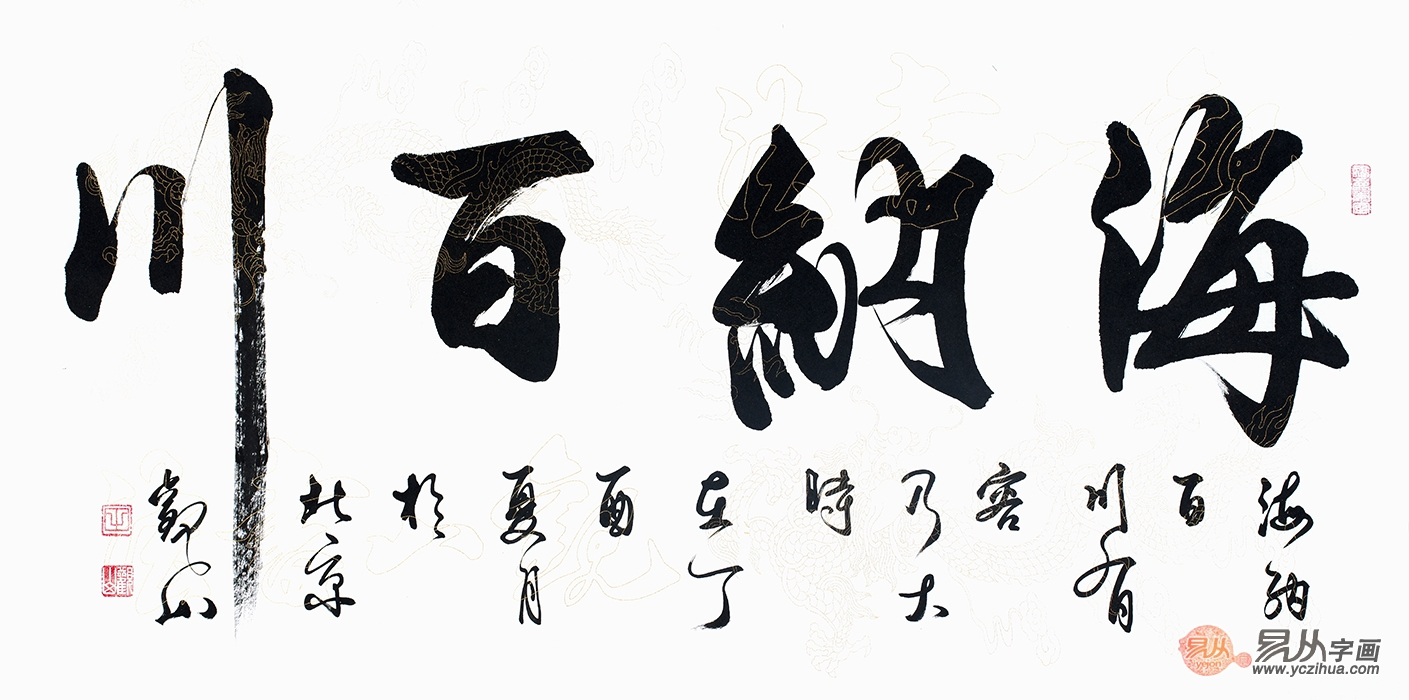 海納百川
海納
百
川有
容
乃大
時
在丁
酉
夏月
於
北京
觀山
觀山
易从
易从字画
www.yczihua.com